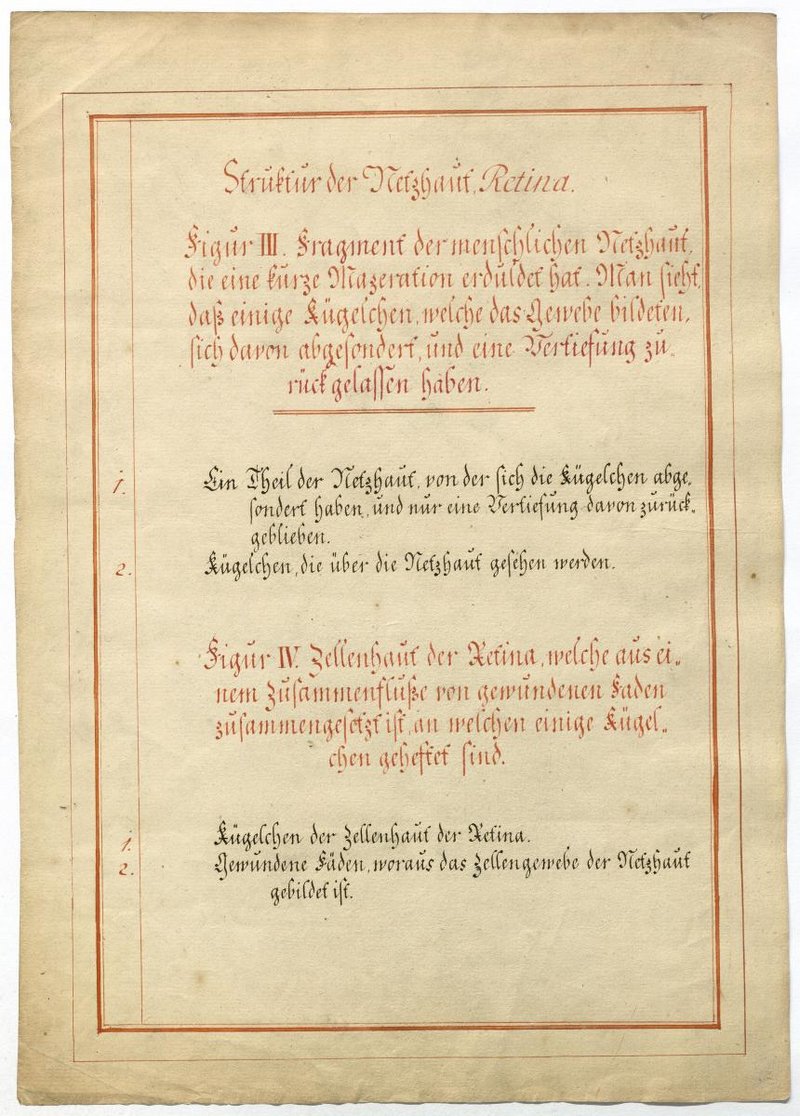 Struktur der Netzhaut, Retina.
Figur III. Fragment der menschlichen Netzhaut,
die eine kurze Mazeration erduldet hat. Man sieht,
daß einige Kügelchen, welche das Gewebe bildeten,
sich davon abgesondert, und eine Vertiefung zu„
rück gelassen haben.
1. Ein Theil der Netzhaut, von der sich die Kügelchen abge„
sondert haben, und nur eine Vertiefung davon zurück„
geblieben.
2. Kügelchen, die über die Netzhaut gesehen werden.
Figur IV. Zellenhaut der Retina, welche aus ei„
nem Zusammenfluße von gewundenen Faden
zusammengesetzt ist, an welchen einige Kügel„
chen geheftet sind.
1. Kügelchen der Zellenhaut der Retina.
2. Gewundene Fäden, woraus das Zellengewebe der Netzhaut
gebildet ist.